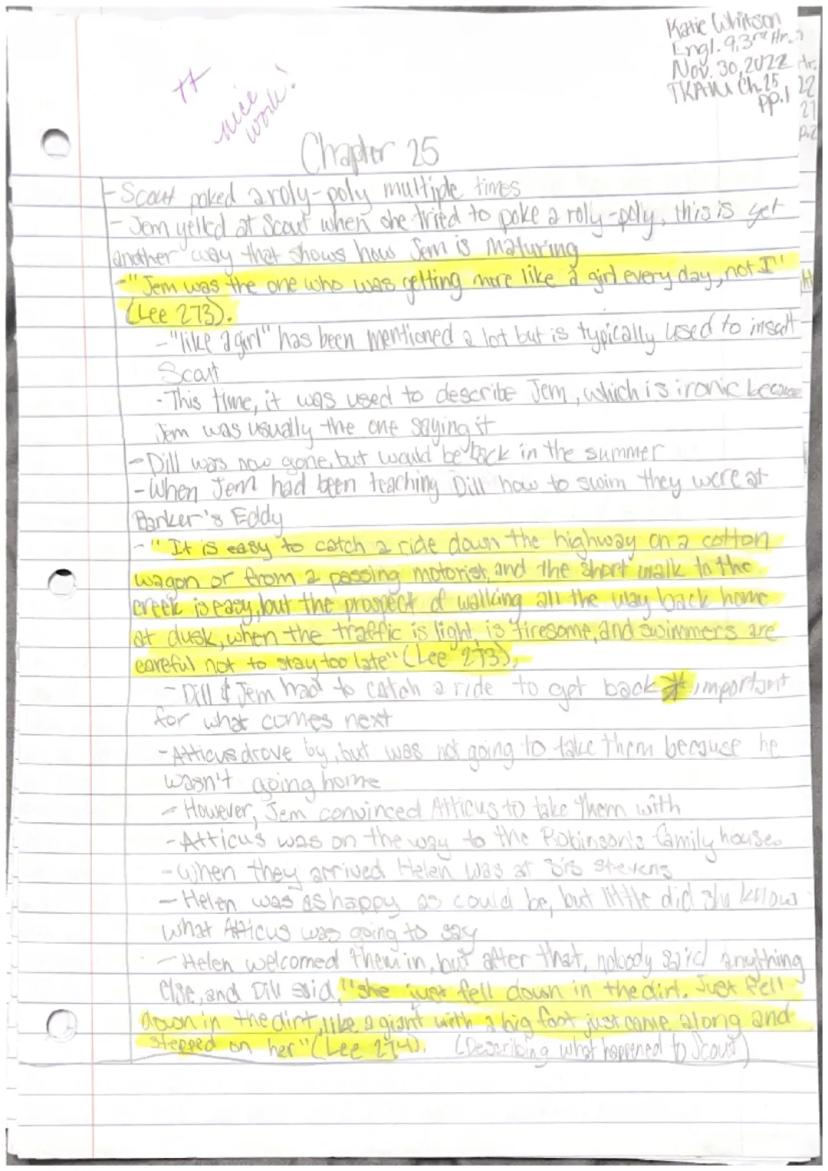 Katie Whitson
Engl. 9, 3rd Hr.
Nov. 30, 2022
TKAM Ch. 25
pp. 1
Hr.
22
21
p.2
++
nice
work!
Chapter 25
- Scout poked a roly-poly multiple times
- Jem yelled at Scout when she tried to poke a rolly-poly, this is yet
another way that shows how Jem is maturing
- "Jem was the one who was getting more like a girl every day, not I"
(Lee 273).
- "like a girl" has been mentioned a lot but is typically used to insult
Scout
- This time, it was used to describe Jem, which is ironic because
Jem was usually the one saying it
- Dill was now gone, but would be back in the summer
- When Jem had been teaching Dill how to swim they were at
Barker's Eddy
- "It is easy to catch a ride down the highway on a cotton
wagon or from a passing motorist, and the short walk to the
creek is easy, but the prospect of walking all the way back home
at dusk, when the traffic is light, is tiresome, and swimmers are
careful not to stay too late" (Lee 273).
- Dill & Jem had to catch a ride to get back * important
for what comes next
- Atticus drove by, but was not going to take them because he
wasn't going home
- However, Jem convinced Atticus to take them with
- Atticus was on the way to the Robinson's family house.
- When they arrived Helen was at Sis Stevens
- Helen was as happy as could be, but little did she know
what Atticus was going to say
- Helen welcomed them in, but after that, nobody said anything
else, and Dill said, "she just fell down in the dirt. Just fell
down in the dirt, like a giant with a big foot just came along and
stepped on her" (Lee 274). (Describing what happened to Scout)